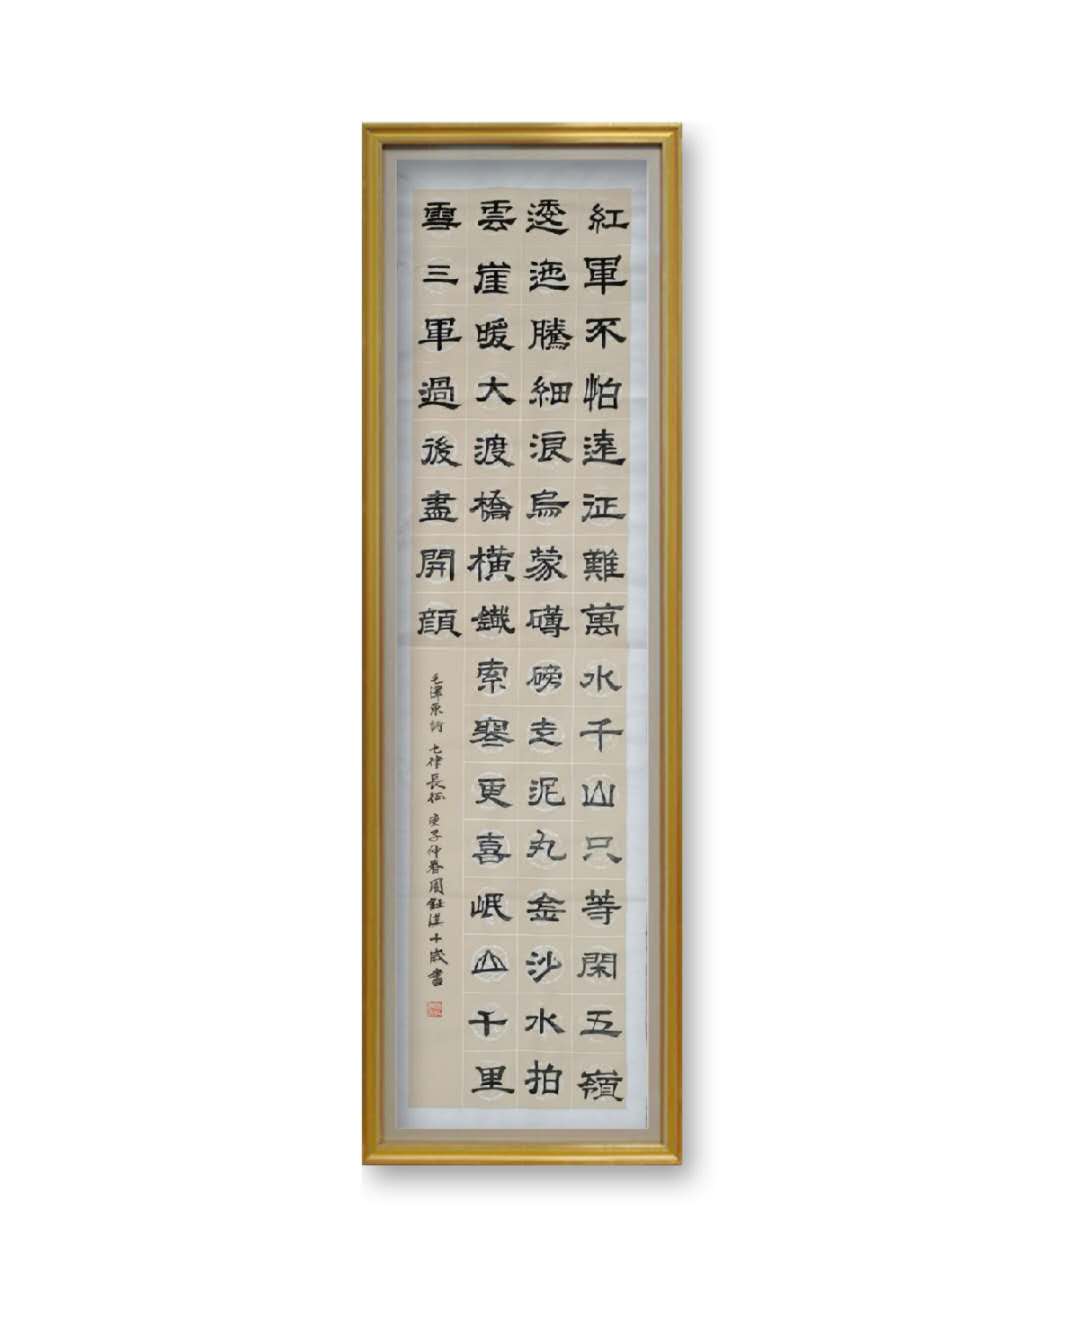 紅軍不怕遠征難萬水千山只等閑五嶺
逶迤騰細浪烏蒙礴磅走泥丸金沙水拍
雲崖暖大渡橋橫鐵索寒更喜岷山千里
雪三軍過後盡開顔
毛澤東詩 七律長征 庚子仲春周鈺淇十歲書